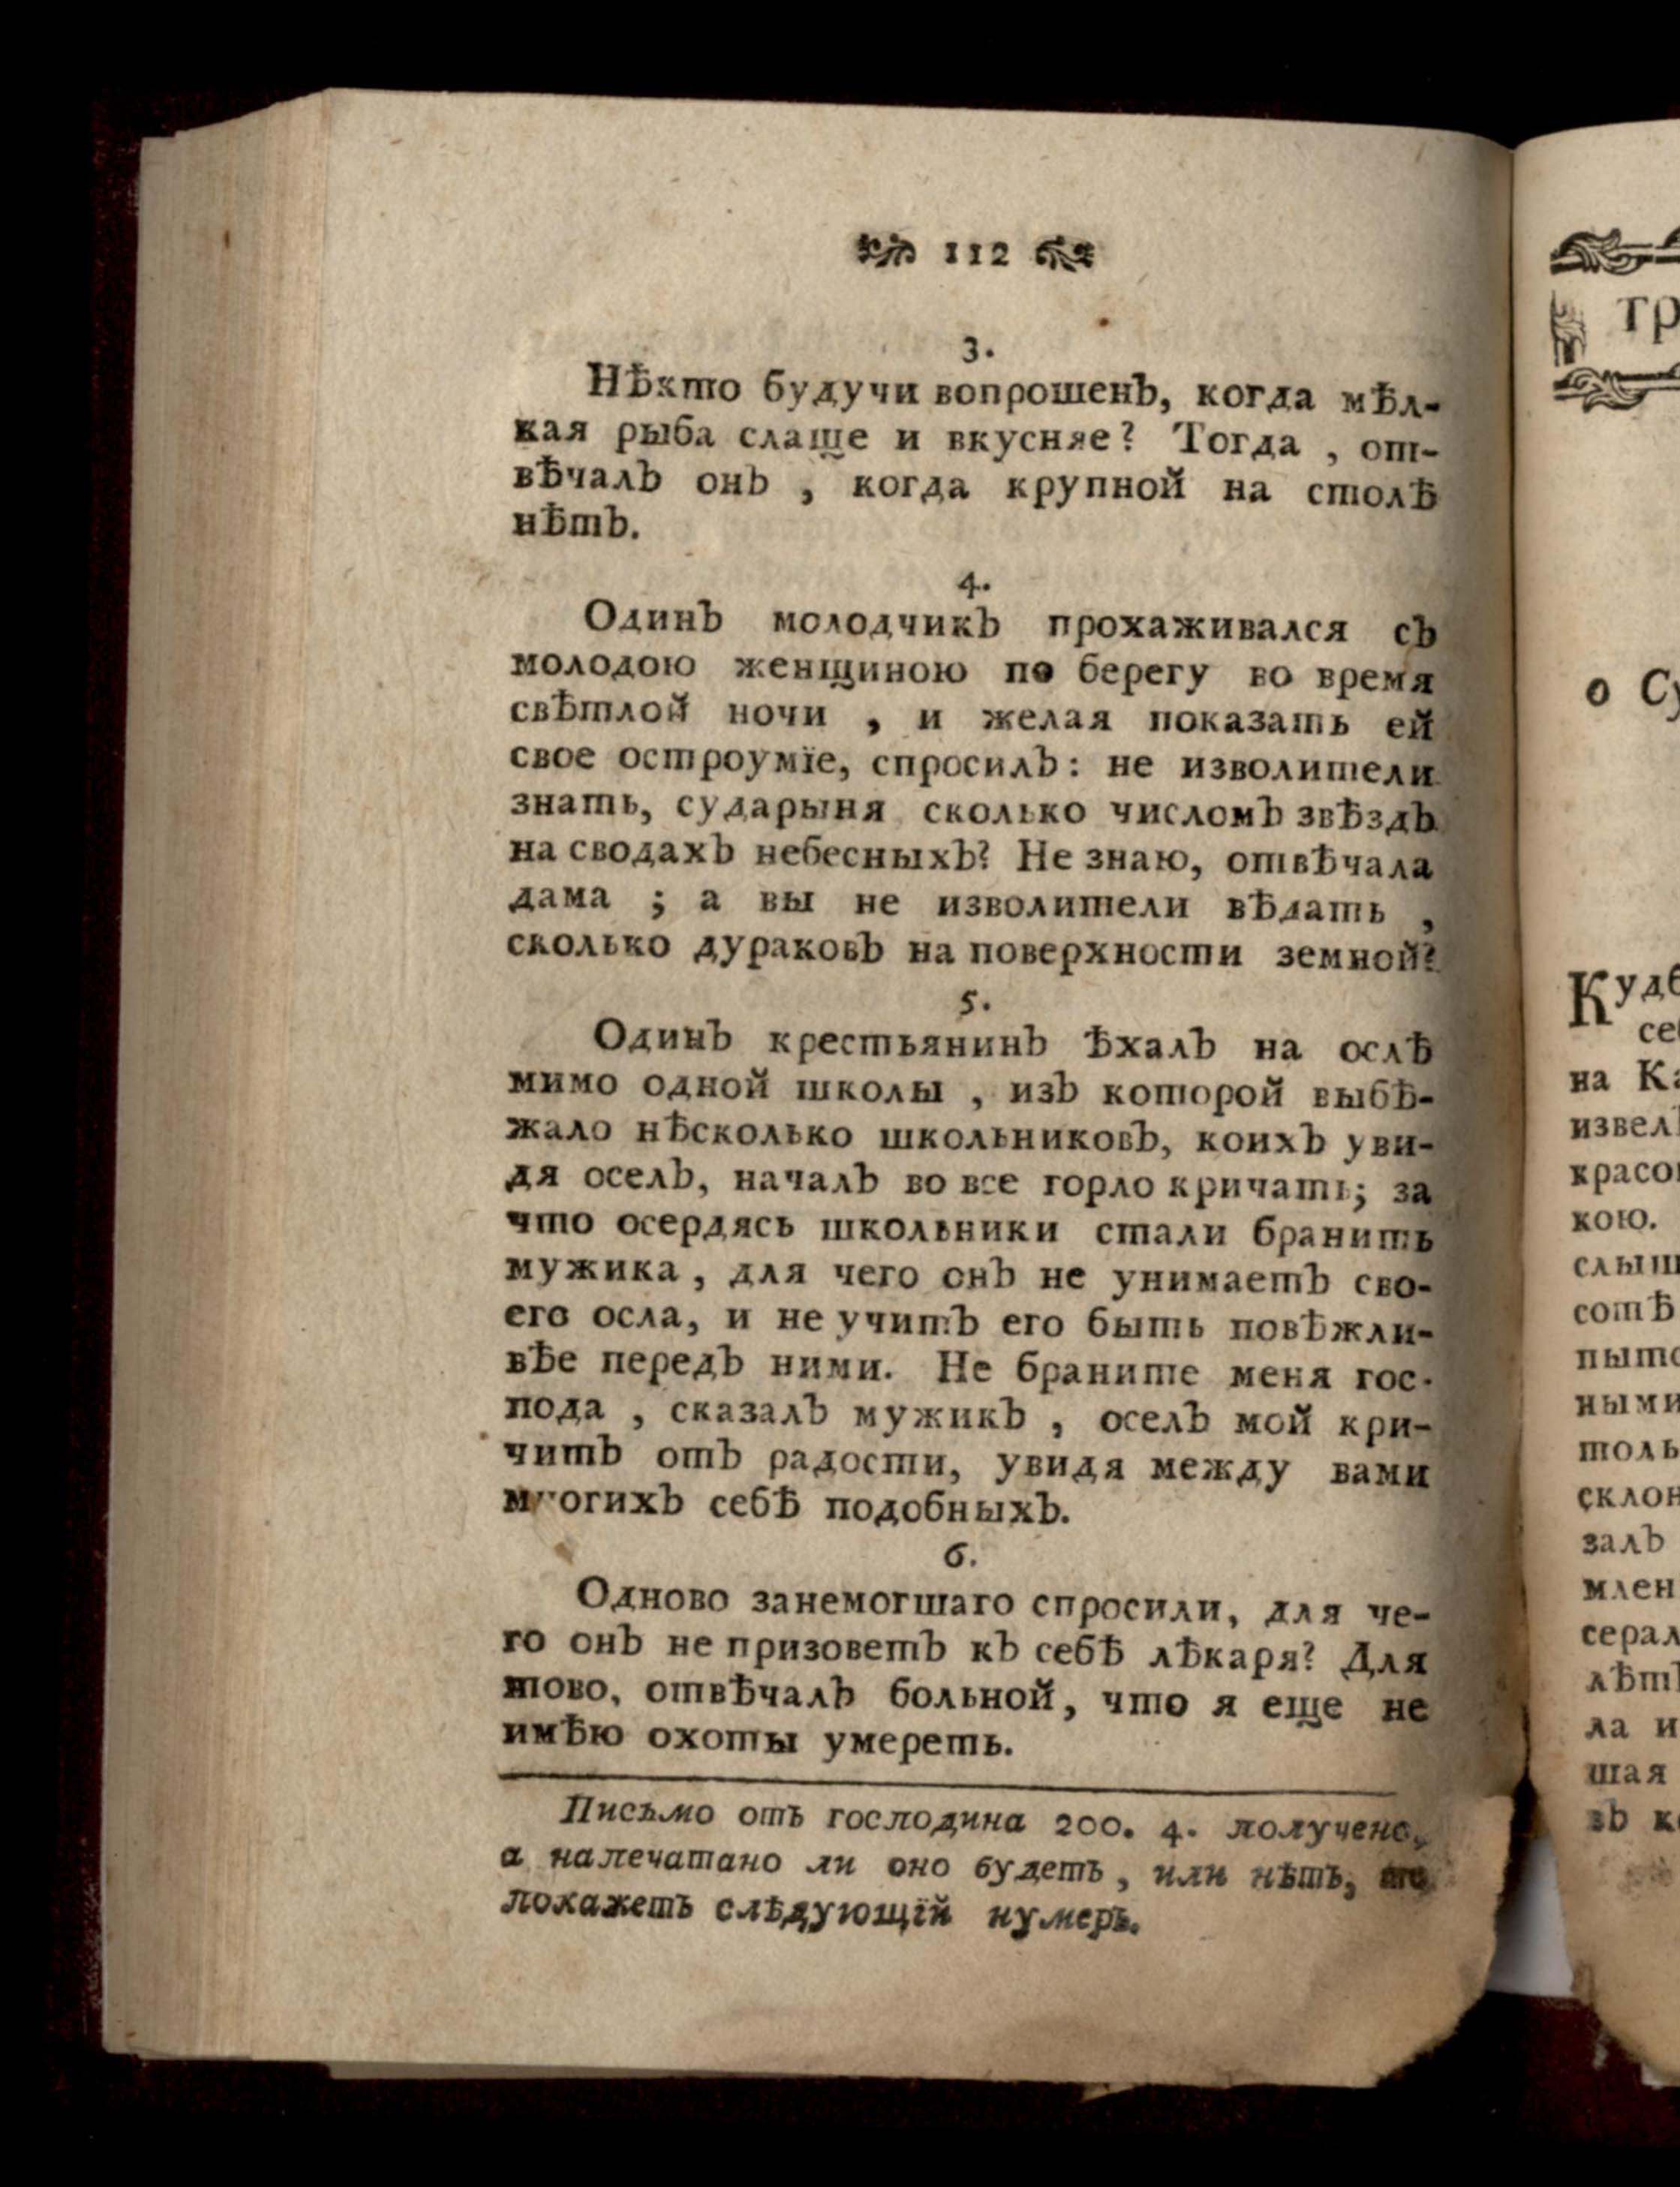 112
3.
Нѣкто будучи вопрошенъ, когда мѣл-
кая рыба слаще и вкусняе? Тогда , от-
вѣчалъ онъ , когда крупной на столѣ
нѣтъ.
4.
Одинъ молодчикъ прохаживался съ
молодою женщиною по берегу во время
свѣтлой ночи , и желая показать ей
свое остроуміе, спросилъ: не изволители
знать, сударыня сколько числомъ звѣздъ
на сводахъ небесныхъ? Не знаю, отвѣчала
дама ; а вы не изволители вѣдать ,
сколько дураковъ на поверхности земной?
5.
Одинъ крестьянинъ ѣхалъ на ослѣ
мимо одной школы , изъ которой выбѣ-
жало нѣсколько школьниковъ, коихъ уви-
дя оселъ, началъ во все горло кричать; за
что осердясь школьники стали бранить
мужика , для чего онъ не унимаетъ сво-
его осла, и не учитъ его быть повѣжли-
вѣе передъ ними. Не браните меня гос-
пода , сказалъ мужикъ , оселъ мой кри-
читъ отъ радости, увидя между вами
многихъ себѣ подобныхъ.
6.
Одново занемогшаго спросили, для че-
го онъ не призоветъ къ себѣ лѣкаря? Для
тово, отвѣчалъ больной, что я еще не
имѣю охоты умереть.
Письмо отъ господина 200. 4. получено,
а напечатано ли оно будетъ, или нѣтъ, то
покажетъ слѣдующій нумеръ.
ТР
о Су
Куд
се
на Ка
извел
красо
кою.
слыш
сотѣ
пыто
ными
толь
склон
залъ
млен
серал
лѣт
ла и
шая
въ к